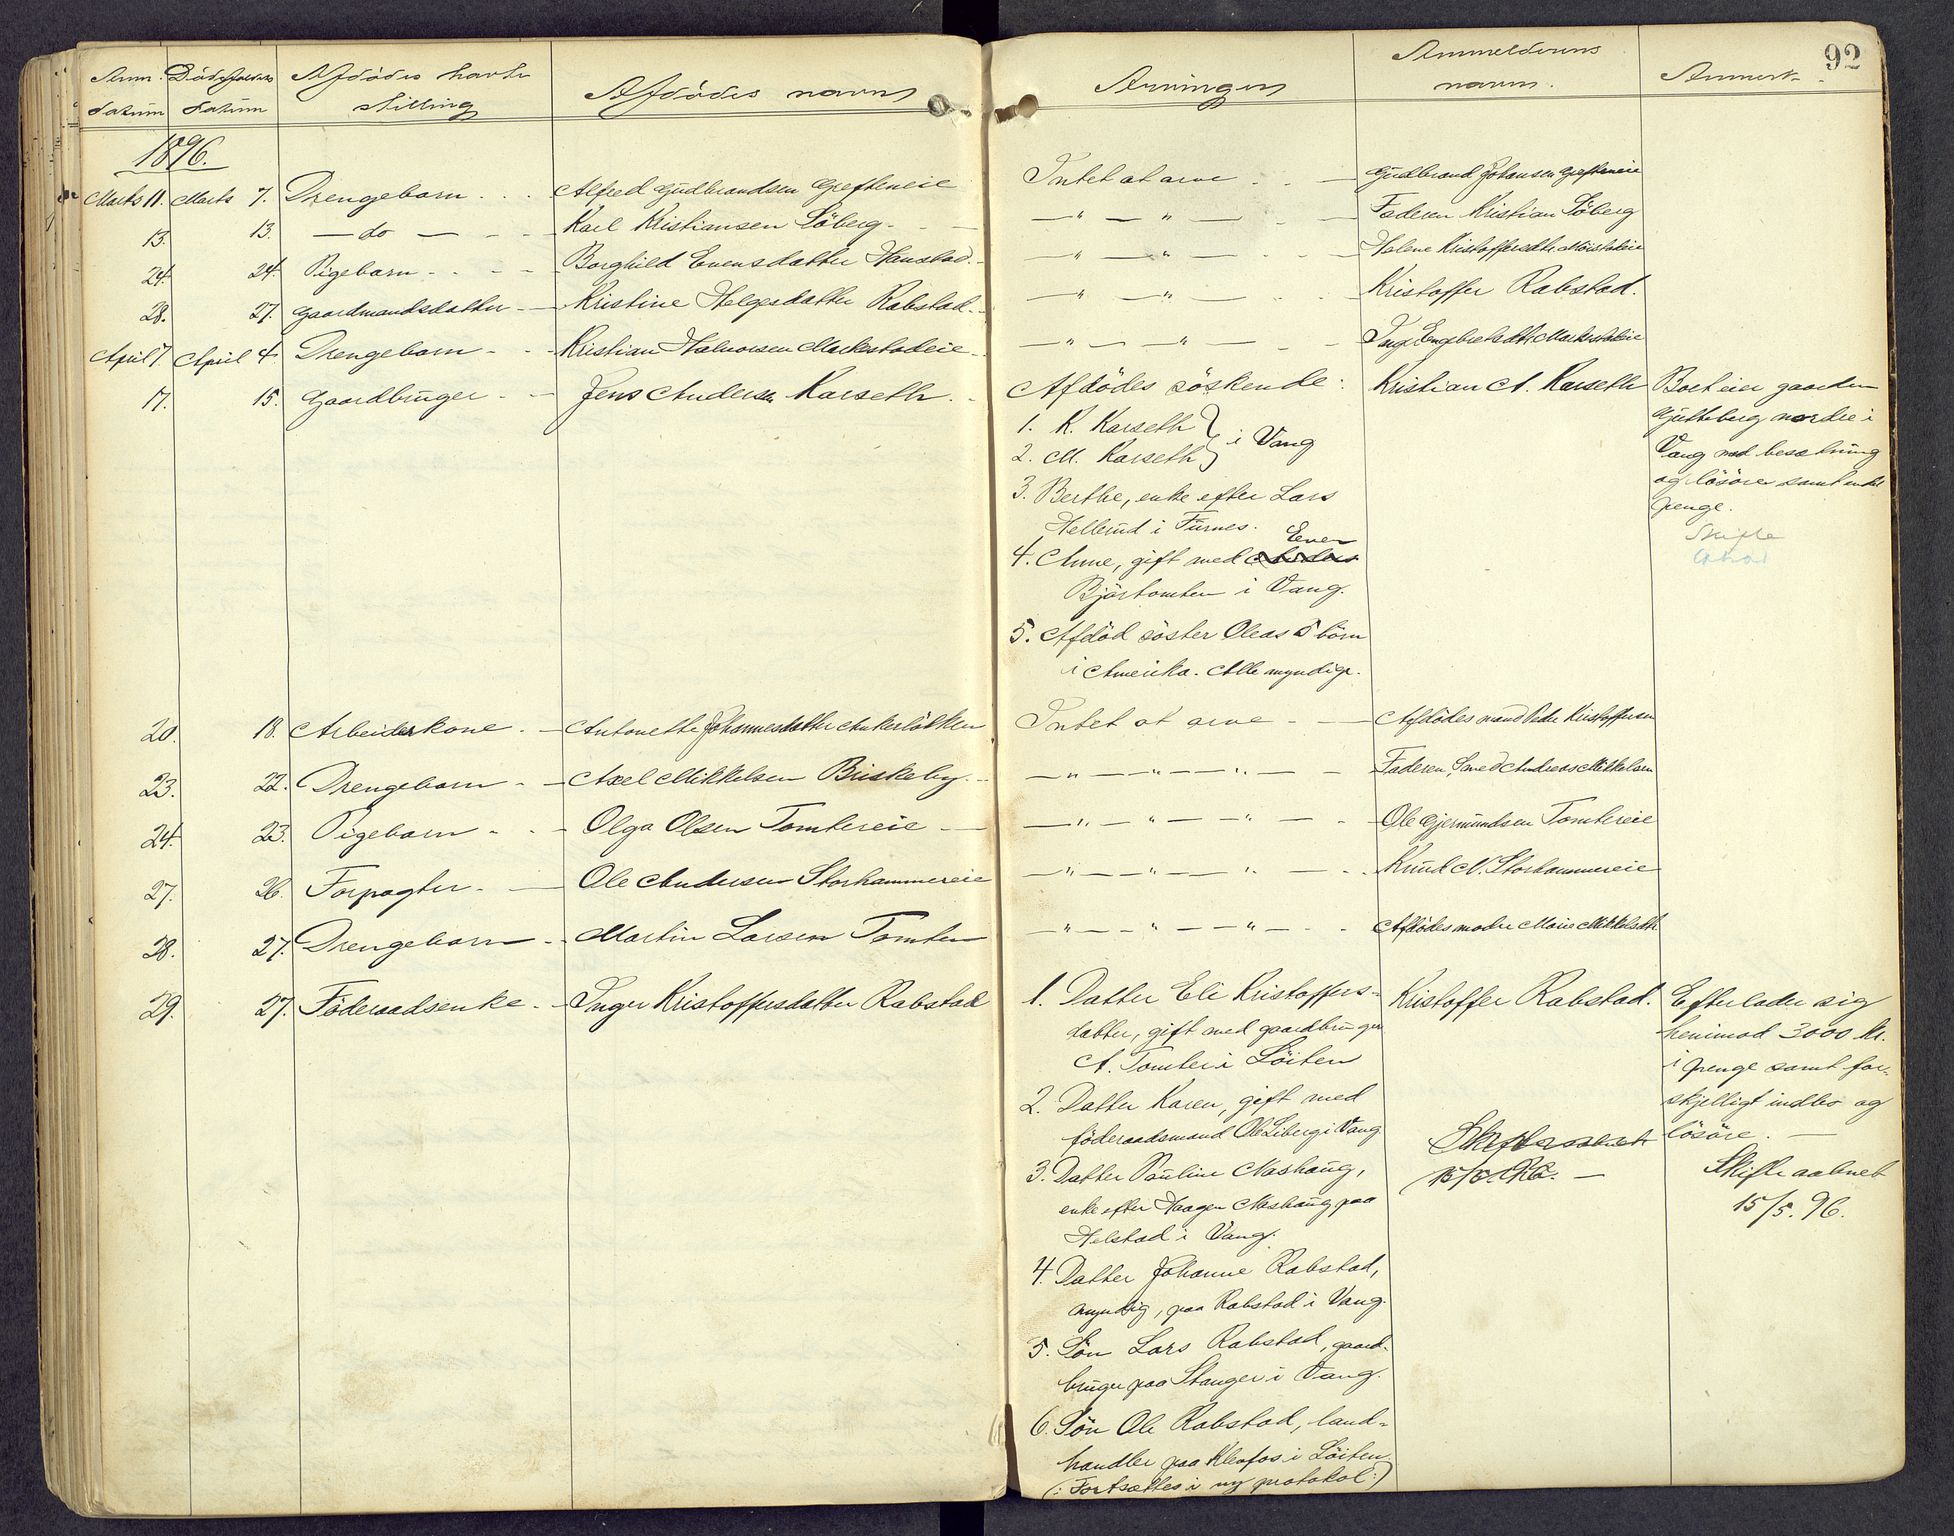 92
Anm. datum
Dødsfaldets datum
Afdødes havte stilling
Afdødes navn
Arvingen
Anmelderens navn.
Anmerk.
1896.
Marts 11. Marts 7. Drengebarn Alfred Gudbrandsen Grefteneie Intet at arve Gudbrand Johansen Grefteneie
13. 13. — do — Karl Kristiansen Söberg — " — " — Faderen Kristian Söberg
24. 24. Pigebarn Borghild Evensdatter Hanstad — " — " — Helene Kristoffersdtr.
28. 27. Gaardmandsdatter Kristine Helgesdatter Rabstad — " — " — Kristoffer Rabstad.
April 7. April 4. Drengebarn Kristian Halvorsen Markestadeie — " — " — Inge Engebretsdtr. Markestadeie
17. 15. Gaardbruger Jens Andersen Karseth Afdødes söskende: Kristian A. Karseth Boet eier gaarden
1. K. Karseth } i Vang
2. M. Karseth
nordre i
Vang med besætning
og lösöre samt endel
penge.
Skifte
3. Berthe, enke efter Lars
Hellerud i Furnes.
Even
4. Anne, gift med Anders
Bjørtomten i Vang.
5. Afdöd söster Oleas 5 börn
i Amerika. Alle myndige.
20. 18. Arbeiderkone Antonette Johannesdatter Ankerlökken Intet at arve Afdödes mand Peder Kristoffersen
23. 22. Drengebarn Axel Mikkelsen Briskeby — " — " — " — Faderen, Smed Andreas Mikkelsen
24. 23. Pigebarn Olga Olsen Tomtereie — " — " — " — Ole Gjermundsen Tomtereie
27. 26. Forpagter Ole Andersen Storhammereie — " — " — " — Knud N. Storhammereie
28. 27. Drengebarn Martin Larsen Tomten — " — " — " — Afdödes moder Marie Mikkelsdtr.
29. 27. Föderaadsenke Inger Kristoffersdatter Rabstad 1. Datter Eli Kristoffers- Kristoffer Rabstad. Efterlader sig
datter, gift med gaardbruger
A. Tomter i Löiten
henimod 3000 kr.
i penge samt for-
skjelligt indbo og
lösöre. —
2. Datter Karen, gift med
föderaadsmand Ole Liberg i Vang
Skifte aabnet
15/5. 96. —
Skifte aabnet
15/5. 96.
3. Datter Pauline Mashaug,
enke efter Haagen Mashaug paa
Helstad i Vang.
4. Datter Johanne Rabstad,
myndig, paa Rabstad i Vang.
5. Sön Lars Rabstad, gaard-
bruger paa Stanger i Vang.
6. Sön Ole Rabstad, land-
handler paa Klevfos i Löiten
(: Fortsættes i ny protokol :)